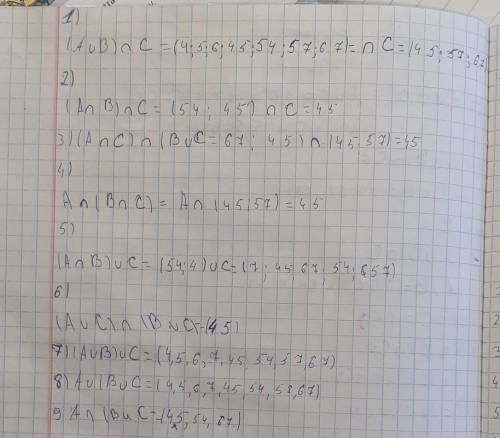 1)
(A∪B)∩C=(4;5;6;45;54;57;67)=∩C=(45;57;67
2)
(A∩B)∩C=(54; 45)∩C=45
3)(A∩C)∩(B∪C=67; 45)∩(45;57)=45
4)
A∩(B∩C)=A∩(45;57)=45
5)
(A∩B)∪C=(54;4)∪C=(7; 45;67;54;657)
6)
(A∪C)∩(B∪C)=(45)
7)(A∪B)∪C=(4,5,6,7,45,54,57,67)
8)A∪(B∪C=(4,5,6,7,45,54,57,67)
9.A∩(B∪C=(45,54,67.)